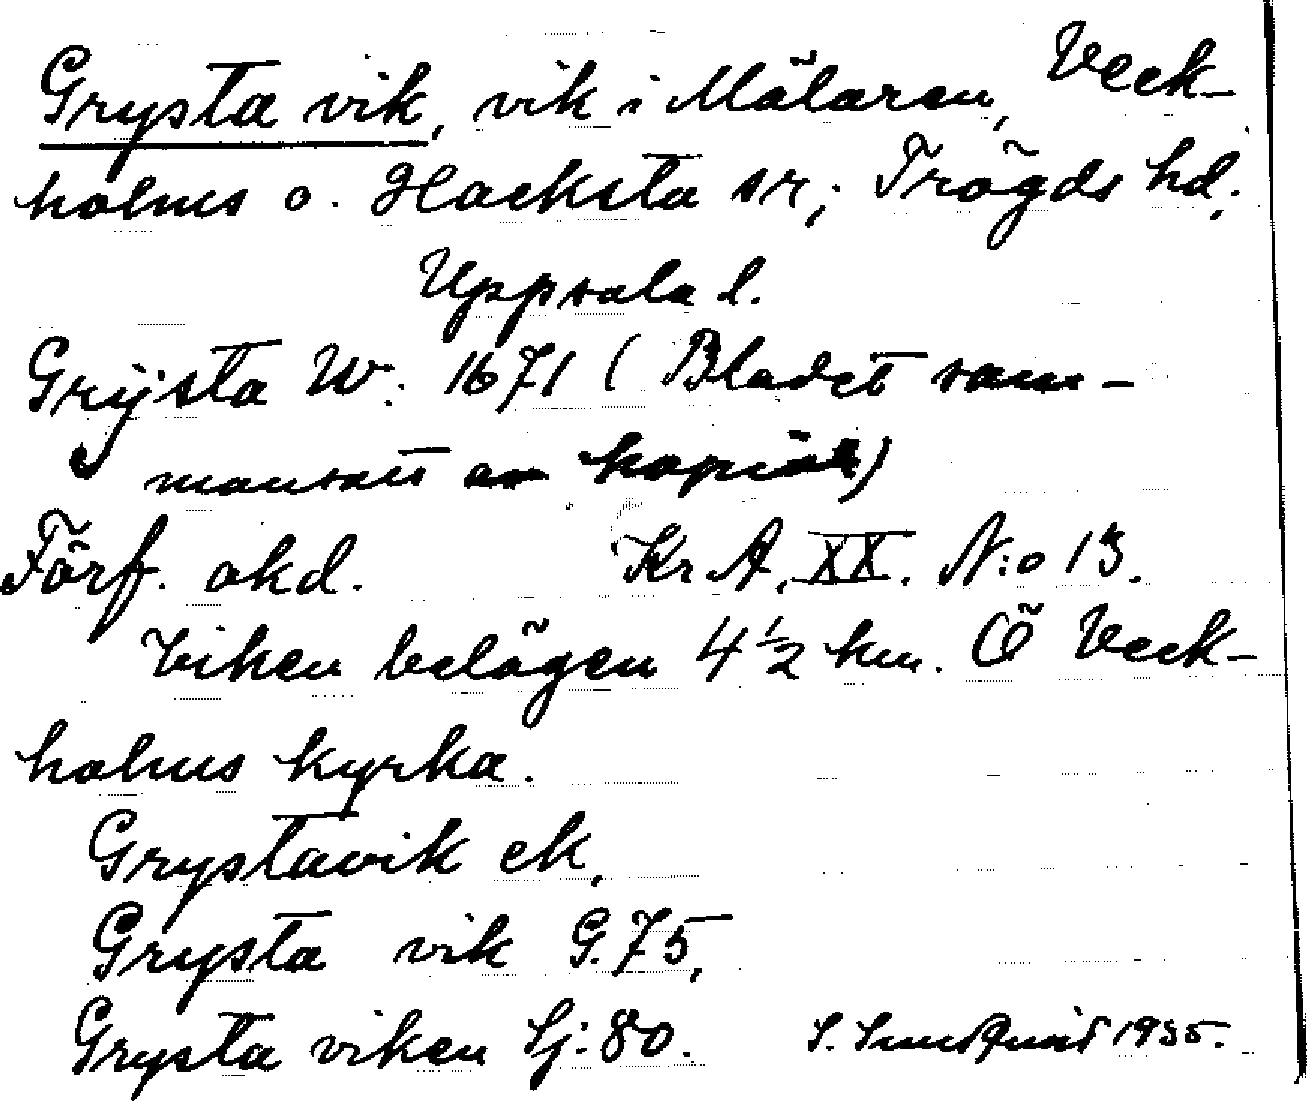 Grysta vik, vik i Mälaren, Veck-
holms o. Hacksta sr, Trögds hd.
Uppsala l.
Grÿsta W. 1671 (Bladet sam-
mansatt av kopiör)
Förf. okd. Kr. A. XX. N:o 13.
Viken belägen 4 1/2 km. Ö Veck-
holms kyrka.
Grystavik ek,
Grysta vik G. 75,
Grysta viken Sj: 80. S. Sundquist 1935.